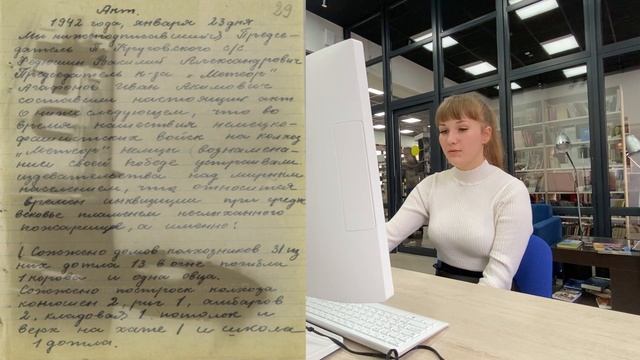 29
Акт.
1942 года, января 23 дня
Мы нижеподписавшийся Предсе-
датель П. Круговского с/с
Федюшин Василий Александрович
Председатель к-за „Метеор"
Агафонов Иван Акимович
составили настоящий акт
о нижеследующем, что во
время нашествия немецко-
фашистских войск на колхоз
„Метеор" немцы вознамена-
нии своей победе устраивали
издевательства над мирным
населением, что относится
времен инквизиции при средне
вековье пламенем неслыханного
пожарища, а именно:
1 Сожжено домов колхозников 31 из
них дотла 13 в огне погибли
1 корова и одна овца.
Сожжено построек колхоза
конюшен 2, риг 1, амбаров
2. кладовая 1 потолок и
верх на хате 1 и школа
1 дотла.